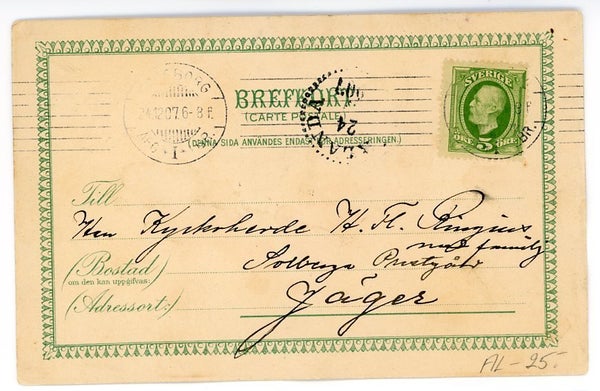 SVERIGE
5
ÖRE ÖRE
24.12.07.6-8 F.
1
BREFKORT
(CARTE POSTALE)
(DENNA SIDA ANVÄNDES ENDAST FÖR ADRESSERINGEN.)
SANDA
24
Till
Herr Kyrkoherde H. Fl. Ringius
med familj
Solberga Prestgård
(Bostad)
om den kan uppgifvas:
Jäger
(Adressort:)
AL-25:-